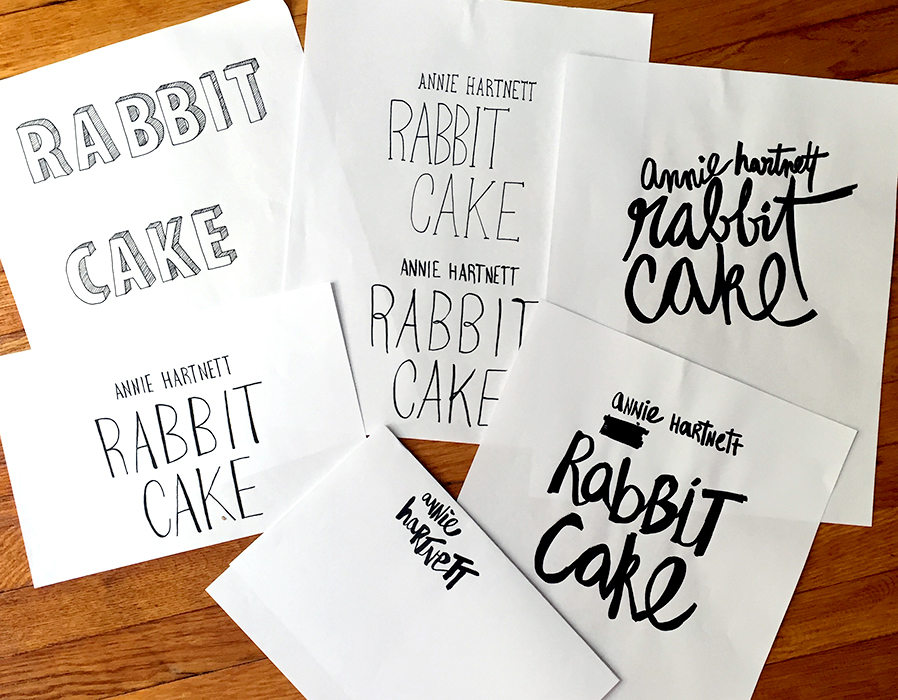 RABBIT
CAKE
ANNIE HARTNETT
RABBIT
CAKE
ANNIE HARTNETT
RABBIT
CAKE
annie hartnett
rabbit
cake
ANNIE HARTNETT
RABBIT
CAKE
annie
hARTNeTT
aNNie HARTNeTT
RabBiT
Cake